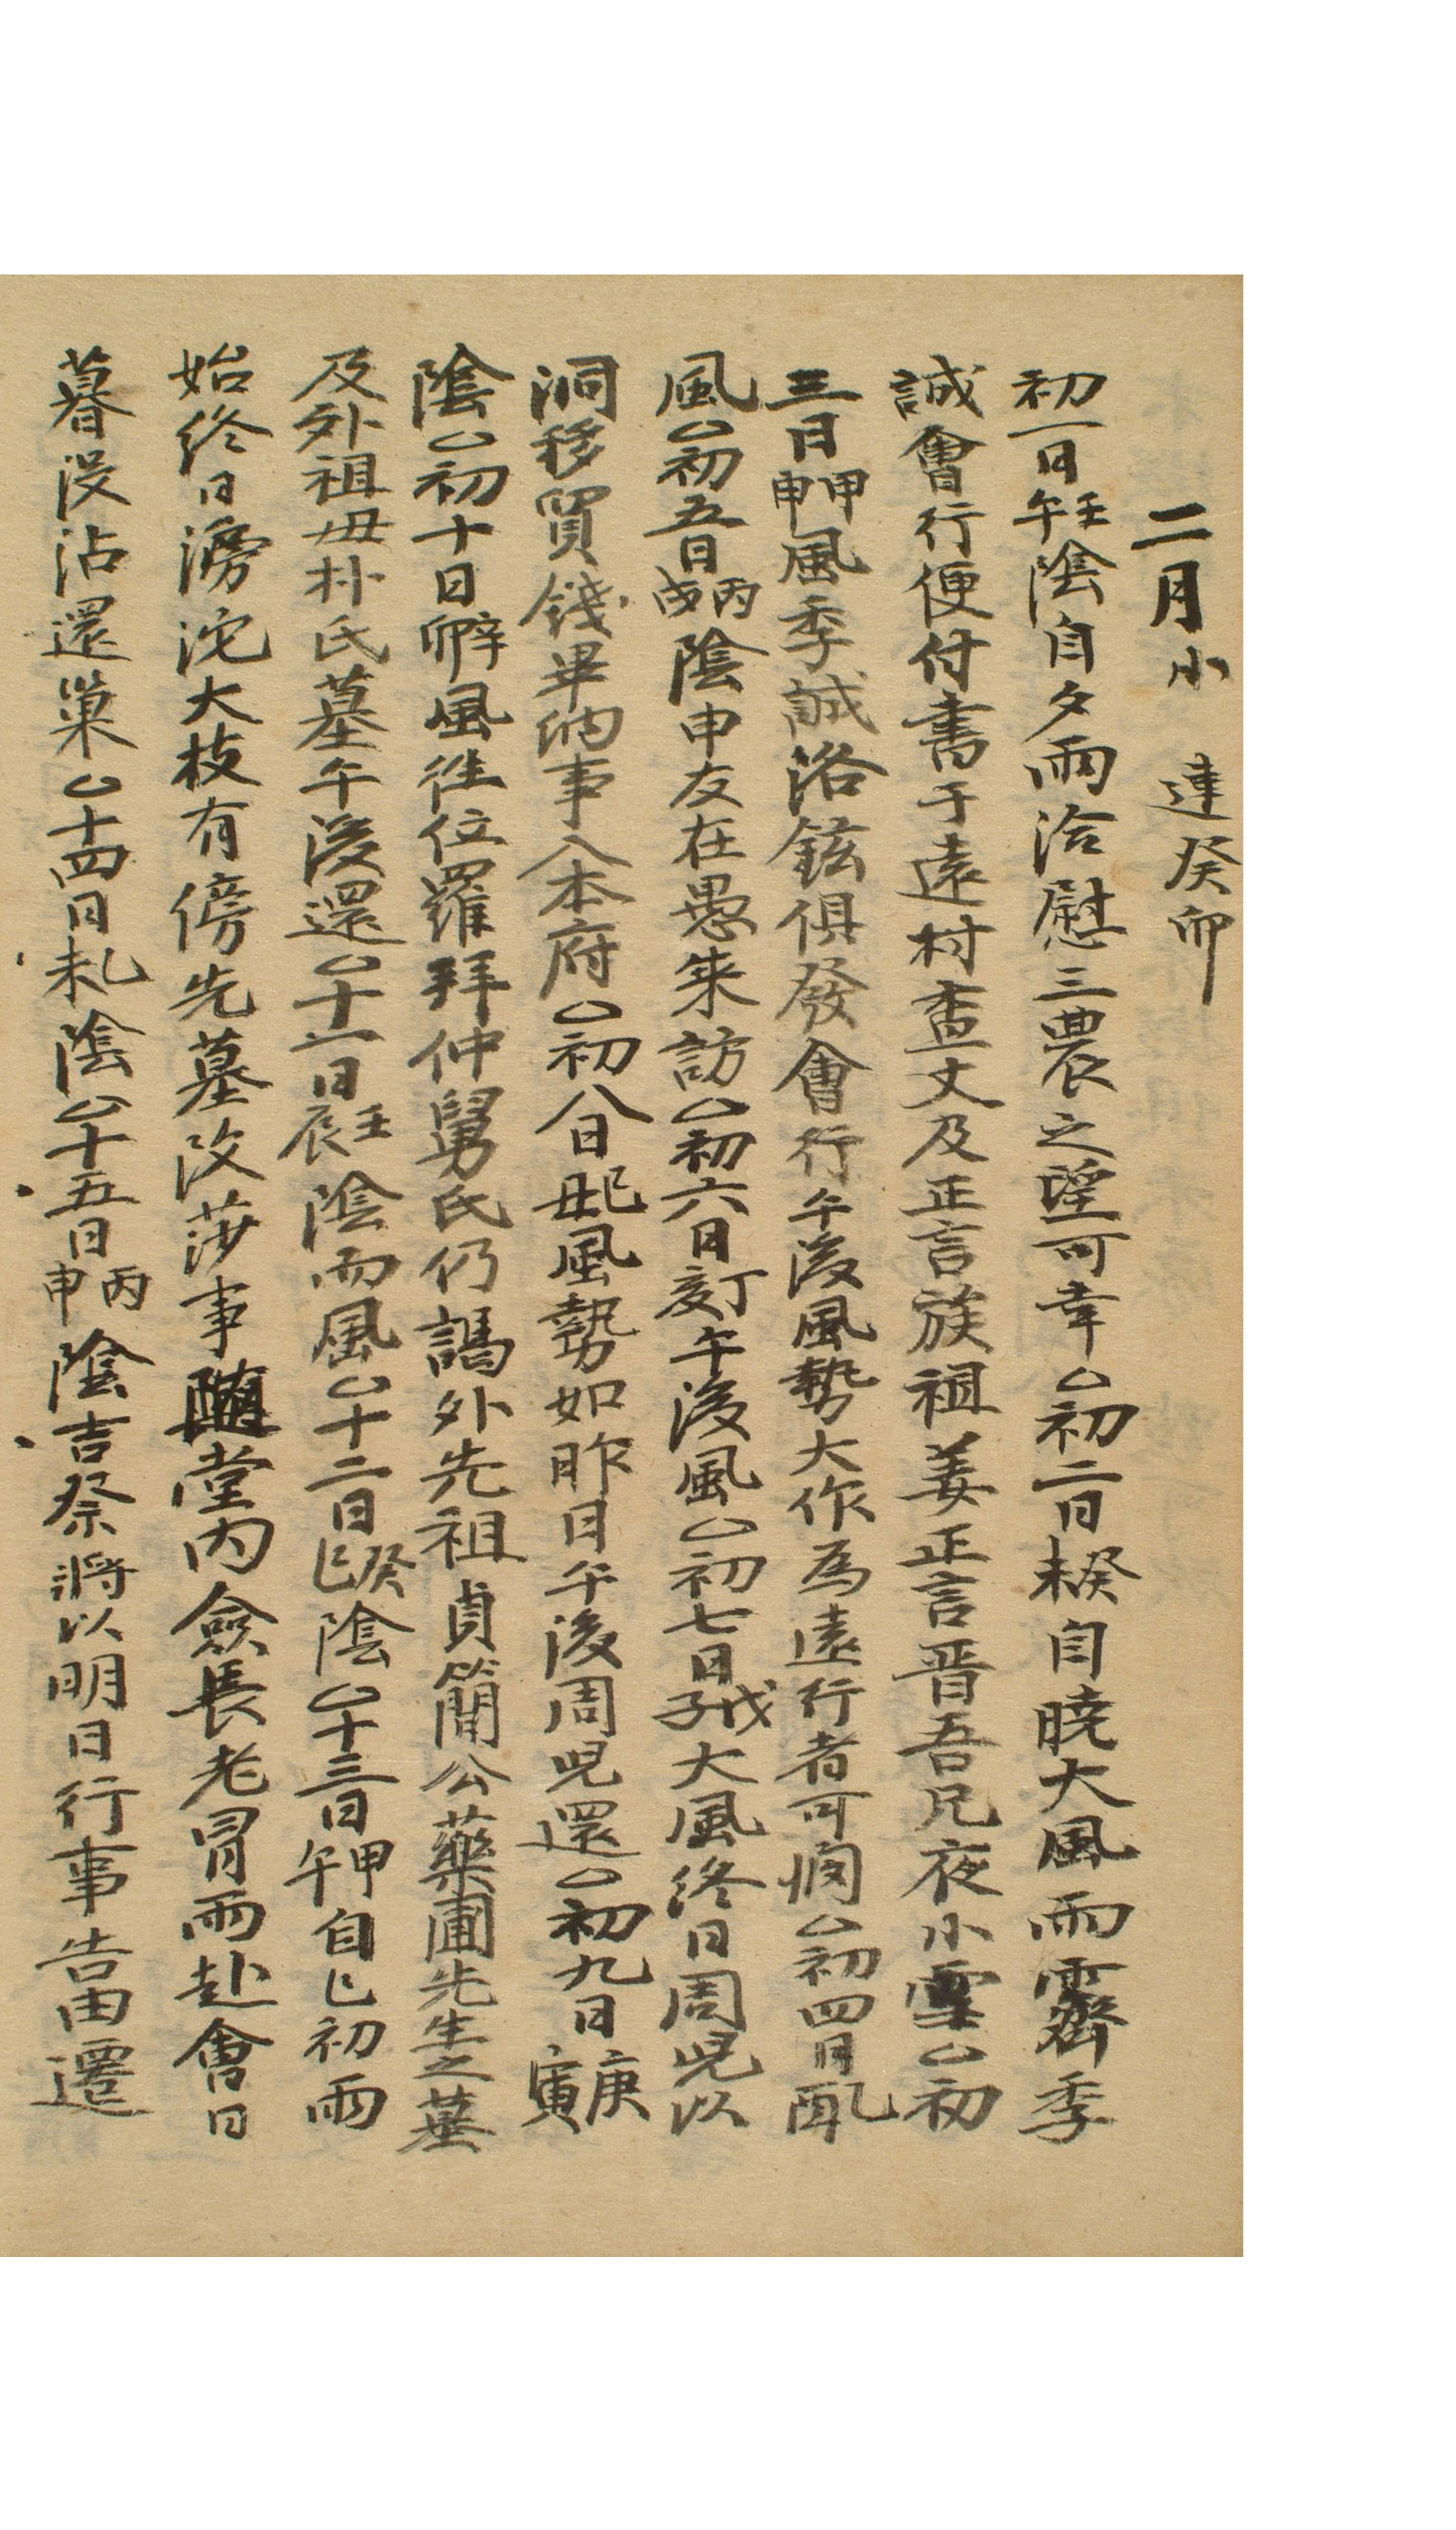 二月小 建癸卯
初一日壬午陰自夕雨洽慰三農之望可幸○初二日癸未自曉大風雨霽季
誠會行便付書于遠村查丈及正言族祖姜正言晋吾兄夜小雪○初
三日甲申風季誠洛鉉俱發會行午後風勢大作為遠行者可憫○初四日乙酉
風○初五日丙戌陰申友在愚来訪○初六日丁亥午後風○初七日戊子大風終日周児以
洞移貿錢畢納事入本府○初八日己丑風勢如昨日午後周児還○初九日庚寅
陰○初十日辛卯風徃位羅拜仲舅氏仍謁外先祖貞簡公藥圃先生之墓
及外祖母朴氏墓午後還○十一日壬辰陰而風○十二日癸巳陰○十三日甲午自巳初雨
始終日滂沱大枝有傍先墓改莎事隨堂内僉長老冒雨赴會日
暮沒沾還巢○十四日乙未陰○十五日丙申陰吉祭將以明日行事告由遷